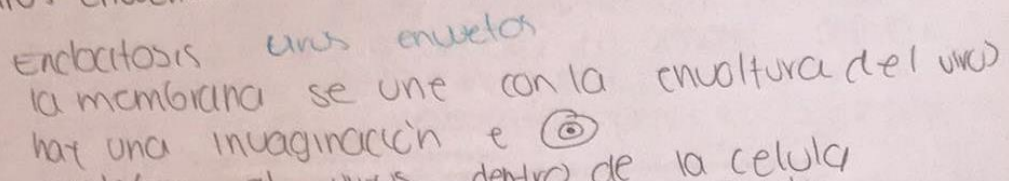 Endocitosis virus envueltos
la membrana se une con la envoltura del virus
hay una invaginación e
dentro de la celula